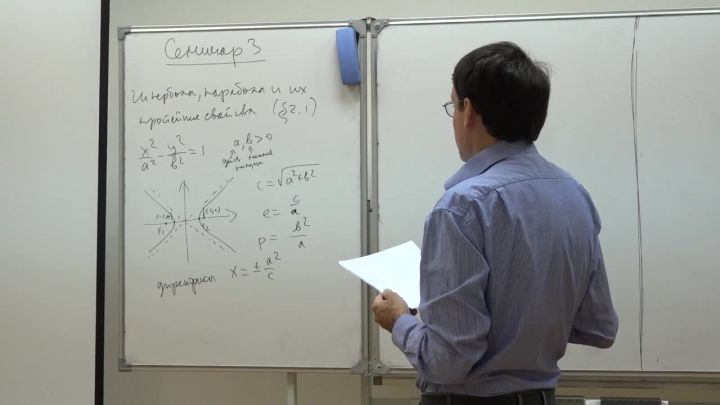 Семинар 3
Гипербола, парабола и их
простейшие свойства (§2.1)
x²/a² - y²/b² = 1 a, b > 0
c = √(a²+b²)
e = c/a
F₁
p = b²/a
директрисы x = ± a²/c